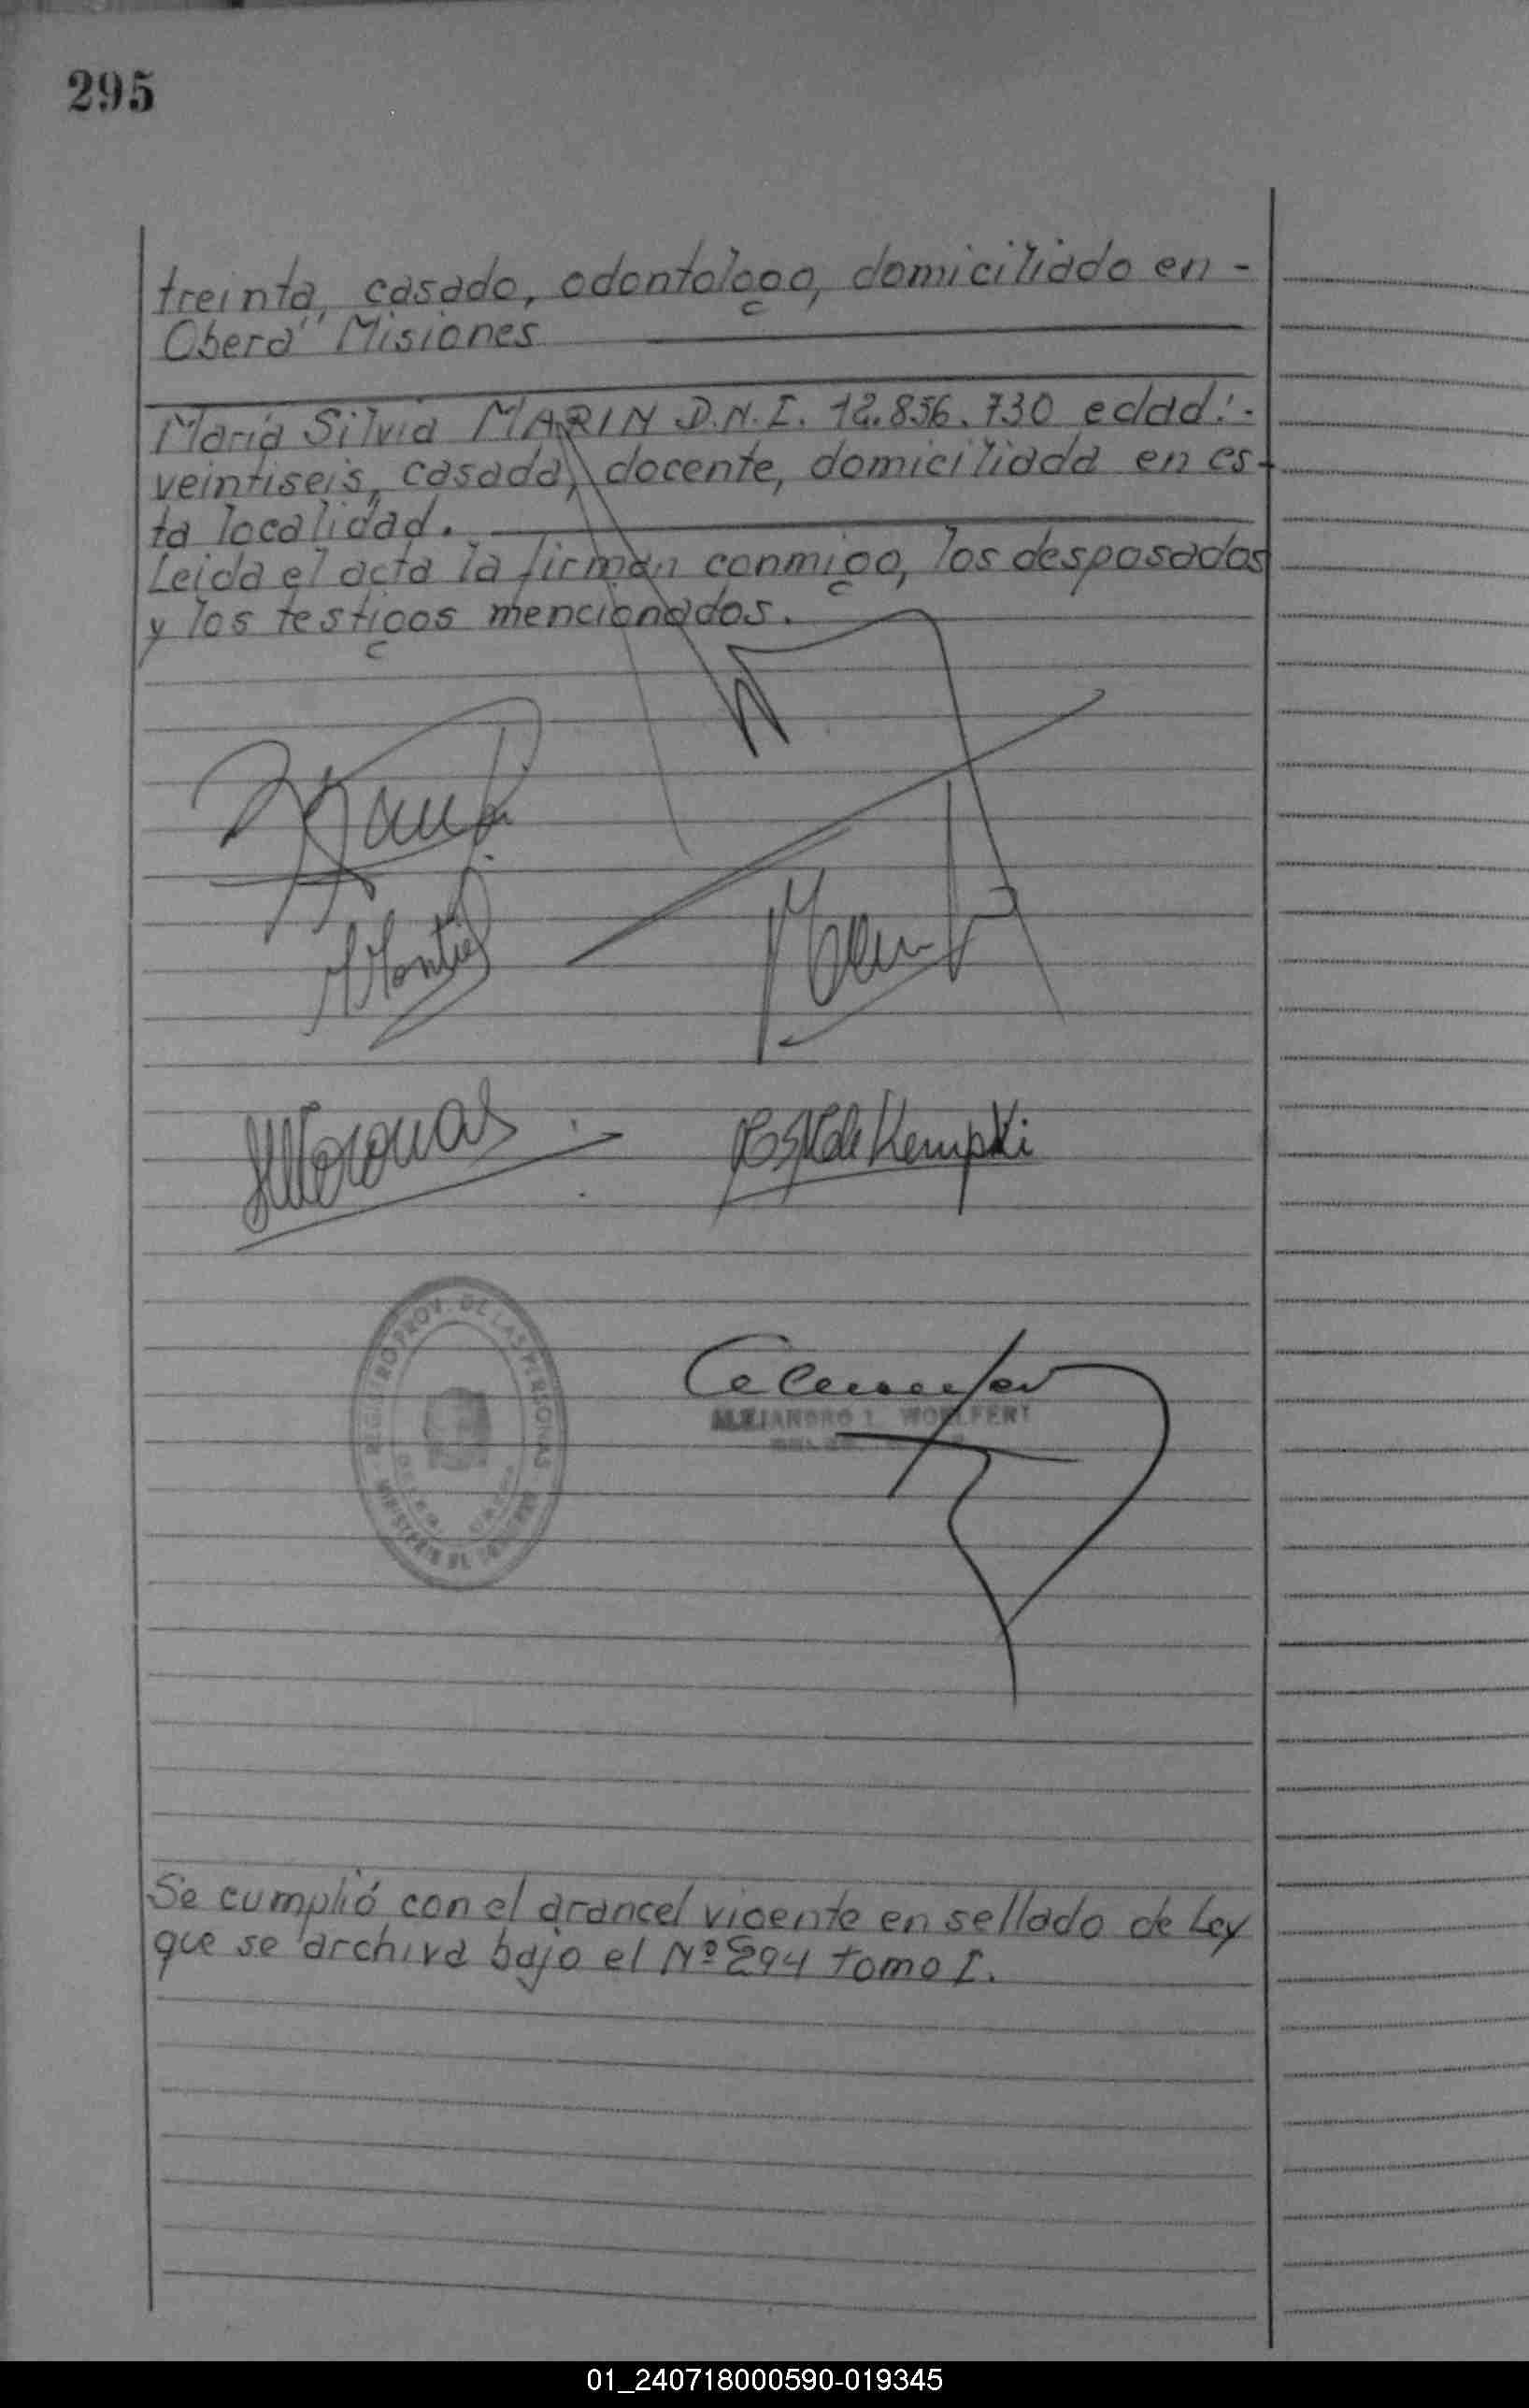 295
treinta, casado, odontologo, domiciliado en -
Oberá Misiones
Maria Silvia MARIN D.N.I. 12.856.730 edad: -
veintiseis, casada, docente, domiciliada en es-
ta localidad.
Leida el acta la firman conmigo, los desposados
y los testigos mencionados.
Montiel
de Kempski
REGISTRO PROV. DE LAS PERSONAS
MINISTERIO DE GOBIERNO
ALEJANDRO L. WOELFERT
Se cumplió con el arancel vigente en sellado de Ley
que se archiva bajo el Nº 294 tomo I.
01_240718000590-019345